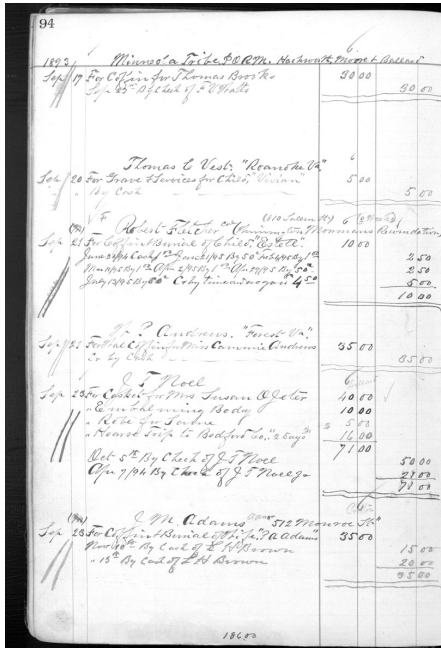 94
1893 Minneola Tribe I.O.R.M. Hackworth, Moore & Ballard 6
Sep 17 For Coffin for Thomas Brooks 30 00
Sep 25th By Check of F V Watts 30 00
Thomas C Vest. "Roanoke Va" 6
Sep 20 For Grave & Services for Child, "Vivian" 5 00
" By Cash 5 00
F (610 Salem St) 6
Robert Fletcher
Sep 21 For Coffin & Burial of Child, "Estell" 10 00
June 21/94 Cash 1 00 2 50
2 50
July 13/95 By 50 4 50 5 00
10 00
P Andrews. "Forest Va"
Sep 21 For Coffin for Miss Cammie Andrews 35 00
Cr by Cash 35 00
J T Noel 6
Sep 23 For Casket for Mrs Susan O Jeter 40 00
" Embalming Body 10 00
" Robe for Same 5 00
" Hearse Trip to Bedford Co., "2 Days" 16 00
71 00
Oct 5th By Check of J T Noel 50 00
Apr 7/94 By Check of J T Noel 21 00
71 00
J. M. Adams 512 Monroe St"
Sep 23 For Coffin & Burial of Wife, "P A Adams" 35 00
Nov 10th By Cash of L H Brown 15 00
" 15th By Cash of L H Brown 20 00
35 00
186 00